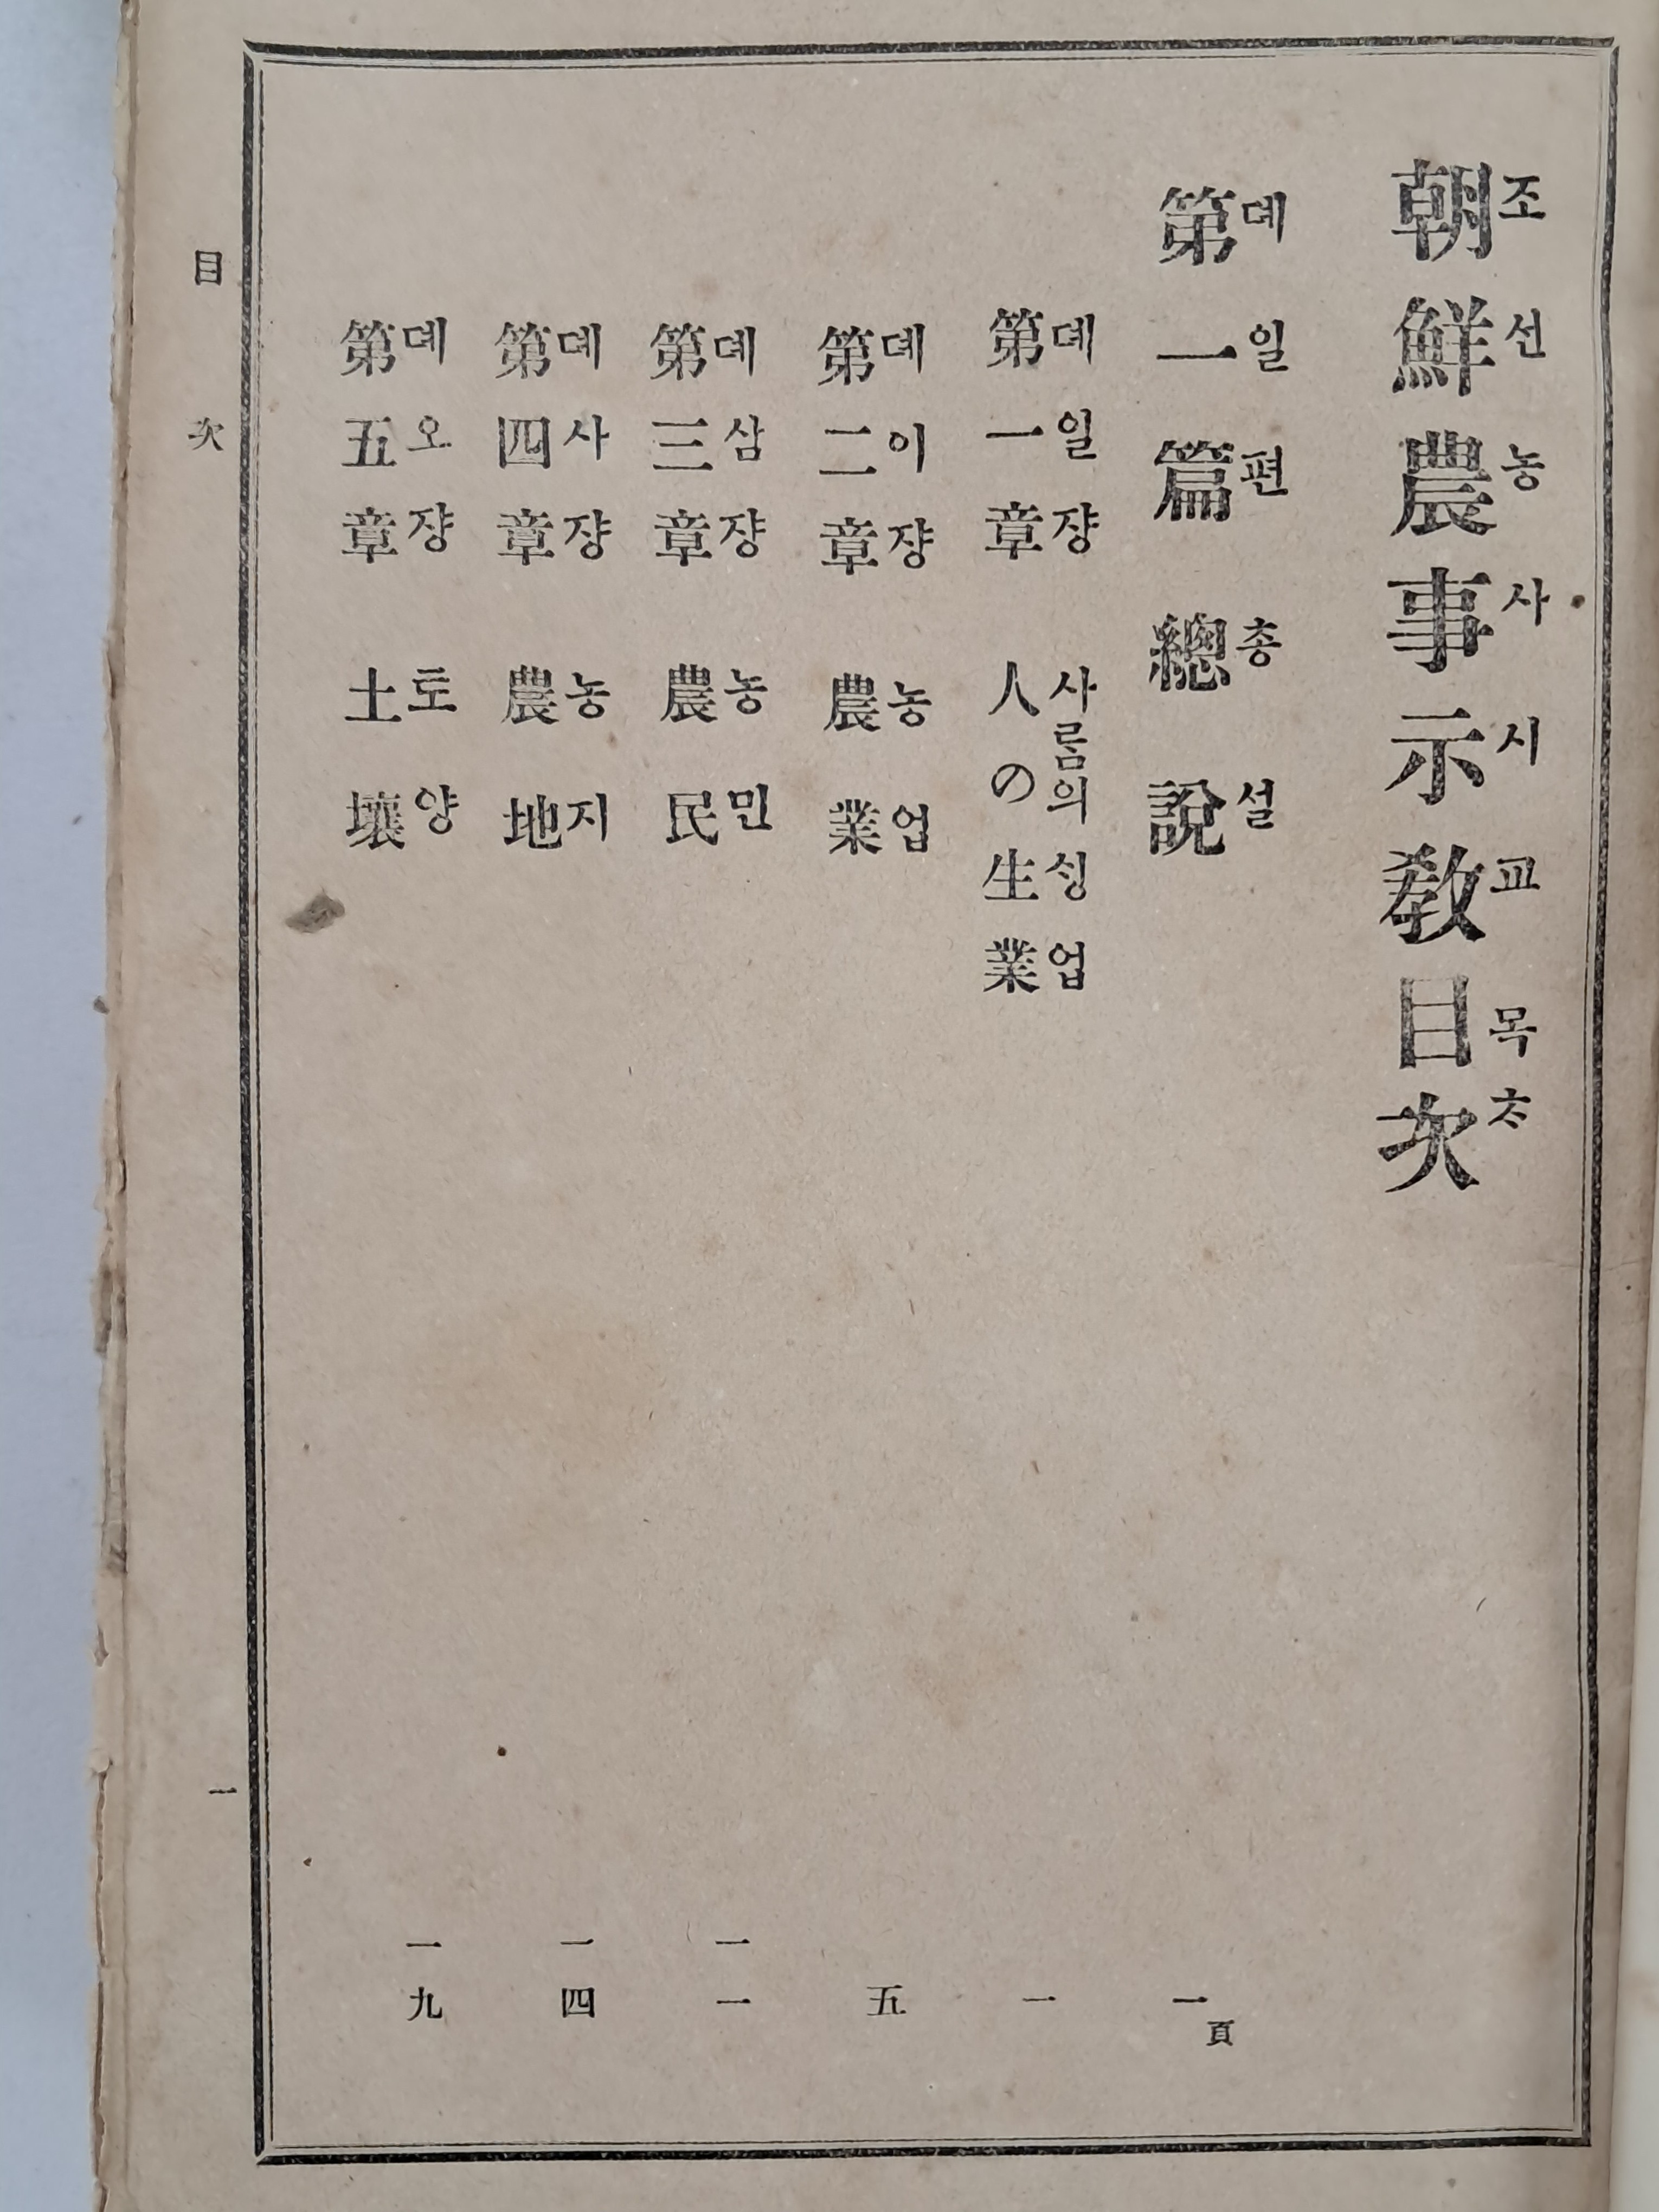 朝鮮農事示敎目次
조선농사시교목ᄎᆞ
第一篇 總說 一頁
뎨일편 총설
第一章 人の生業 一
뎨일쟝 사ᄅᆞᆷ의ᄉᆡᆼ업
第二章 農業 五
뎨이쟝 농업
第三章 農民 一一
뎨삼쟝 농민
第四章 農地 一四
뎨사쟝 농지
第五章 土壤 一九
뎨오쟝 토양
目次 一